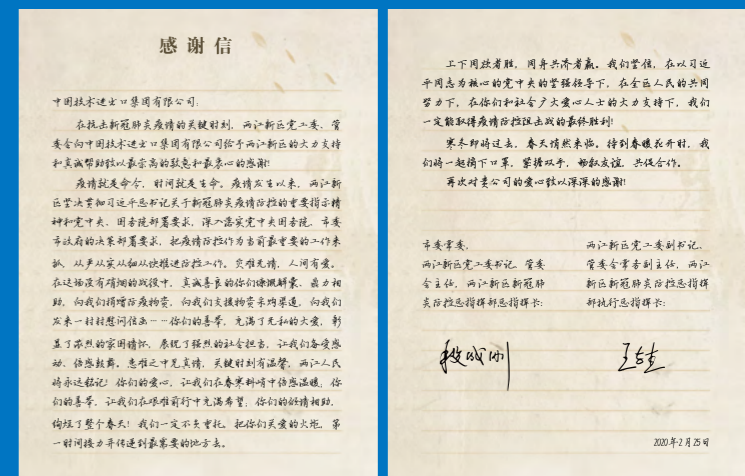 感谢信
中国技术进出口集团有限公司:
在抗击新冠肺炎疫情的关键时刻,两江新区党工委、管
委会向中国技术进出口集团有限公司给予两江新区的大力支持
和真诚帮助致以最崇高的敬意和最衷心的感谢!
疫情就是命令,时间就是生命。疫情发生以来,两江新
区坚决贯彻习近平总书记关于新冠肺炎疫情防控的重要指示精
神和党中央、国务院部署要求,深入落实党中央国务院、市委
市政府的决策部署要求,把疫情防控作为当前最重要的工作来
抓,从严从实从细从快推进防控工作。灾难无情,人间有爱。
在这场没有硝烟的战役中,真诚善良的你们慷慨解囊、鼎力相
助,向我们捐赠防疫物资,向我们支援物资采购渠道,向我们
发来一封封慰问信函……你们的善举,充满了无私的大爱,彰
显了浓烈的家国情怀,展现了强烈的社会担当,让我们备受感
动、倍感鼓舞。患难之中见真情,关键时刻有温馨,两江人民
将永远铭记!你们的爱心,让我们在春寒料峭中倍感温暖,你
们的善举,让我们在艰难前行中充满希望,你们的倾情相助,
绚烂了整个春天!我们一定不负重托,把你们关爱的火炬,第
一时间接力并传递到最需要的地方去。
上下同欲者胜,同舟共济者赢。我们坚信,在以习近
平同志为核心的党中央的坚强领导下,在全区人民的共同
努力下,在你们和社会广大爱心人士的大力支持下,我们
一定能取得疫情防控阻击战的最终胜利!
寒冬即将过去,春天悄然来临。待到春暖花开时,我
们将一起摘下口罩,紧握双手,畅叙友谊,共促合作。
再次对贵公司的爱心致以深深的感谢!
市委常委,
两江新区党工委书记、管委
会主任,两江新区新冠肺
炎防控总指挥部总指挥长:
两江新区党工委副书记、
管委会常务副主任,两江
新区新冠肺炎防控总指挥
部执行总指挥长:
2020年2月25日